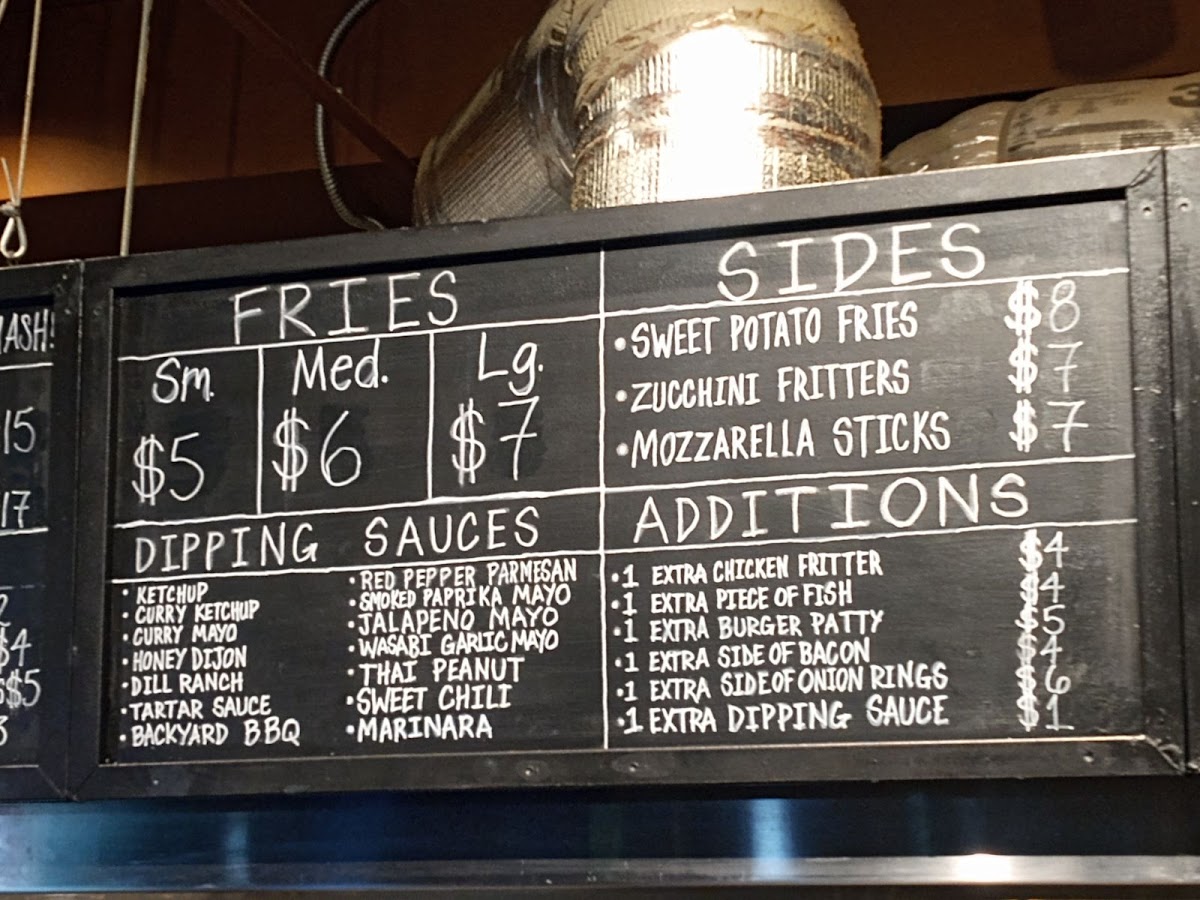 MASH!
15
17
$4
$5
3
FRIES
Sm. Med. Lg.
$5 $6 $7
DIPPING SAUCES
• KETCHUP
• CURRY KETCHUP
• CURRY MAYO
• HONEY DIJON
• DILL RANCH
• TARTAR SAUCE
• BACKYARD BBQ
• RED PEPPER PARMESAN
• SMOKED PAPRIKA MAYO
• JALAPENO MAYO
• WASABI GARLIC MAYO
• THAI PEANUT
• SWEET CHILI
• MARINARA
SIDES
• SWEET POTATO FRIES $8
• ZUCCHINI FRITTERS $7
• MOZZARELLA STICKS $7
ADDITIONS
• 1 EXTRA CHICKEN FRITTER $4
• 1 EXTRA PIECE OF FISH $4
• 1 EXTRA BURGER PATTY $5
• 1 EXTRA SIDE OF BACON $4
• 1 EXTRA SIDE OF ONION RINGS $6
• 1 EXTRA DIPPING SAUCE $1